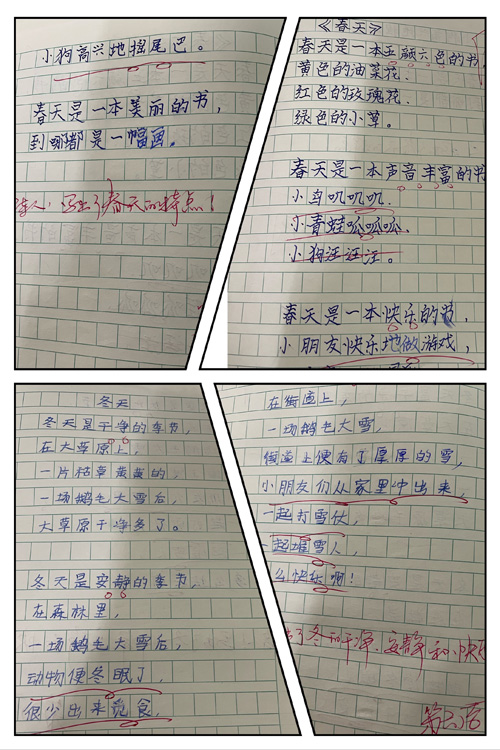 小狗高兴地摇尾巴。
春天是一本美丽的书，
到哪都是一幅画。
诗人，写出了春天的特点！
《春天》
春天是一本五颜六色的书，
黄色的油菜花，
红色的玫瑰花，
绿色的小草。
春天是一本声音丰富的书
小鸟叽叽叽，
小青蛙呱呱呱，
小狗汪汪汪。
春天是一本快乐的书，
小朋友快乐地做游戏，
冬天
冬天是干净的季节，
在大草原上，
一片枯草黄黄的，
一场鹅毛大雪后，
大草原干净多了。
冬天是安静的季节，
在森林里，
一场鹅毛大雪后，
动物便冬眠了，
很少出来觅食，
在街道上，
一场鹅毛大雪，
街道上便有了厚厚的雪，
小朋友们从家里冲出来，
一起打雪仗，
一起堆雪人，
么快乐啊！
了冬的干净，安静和快